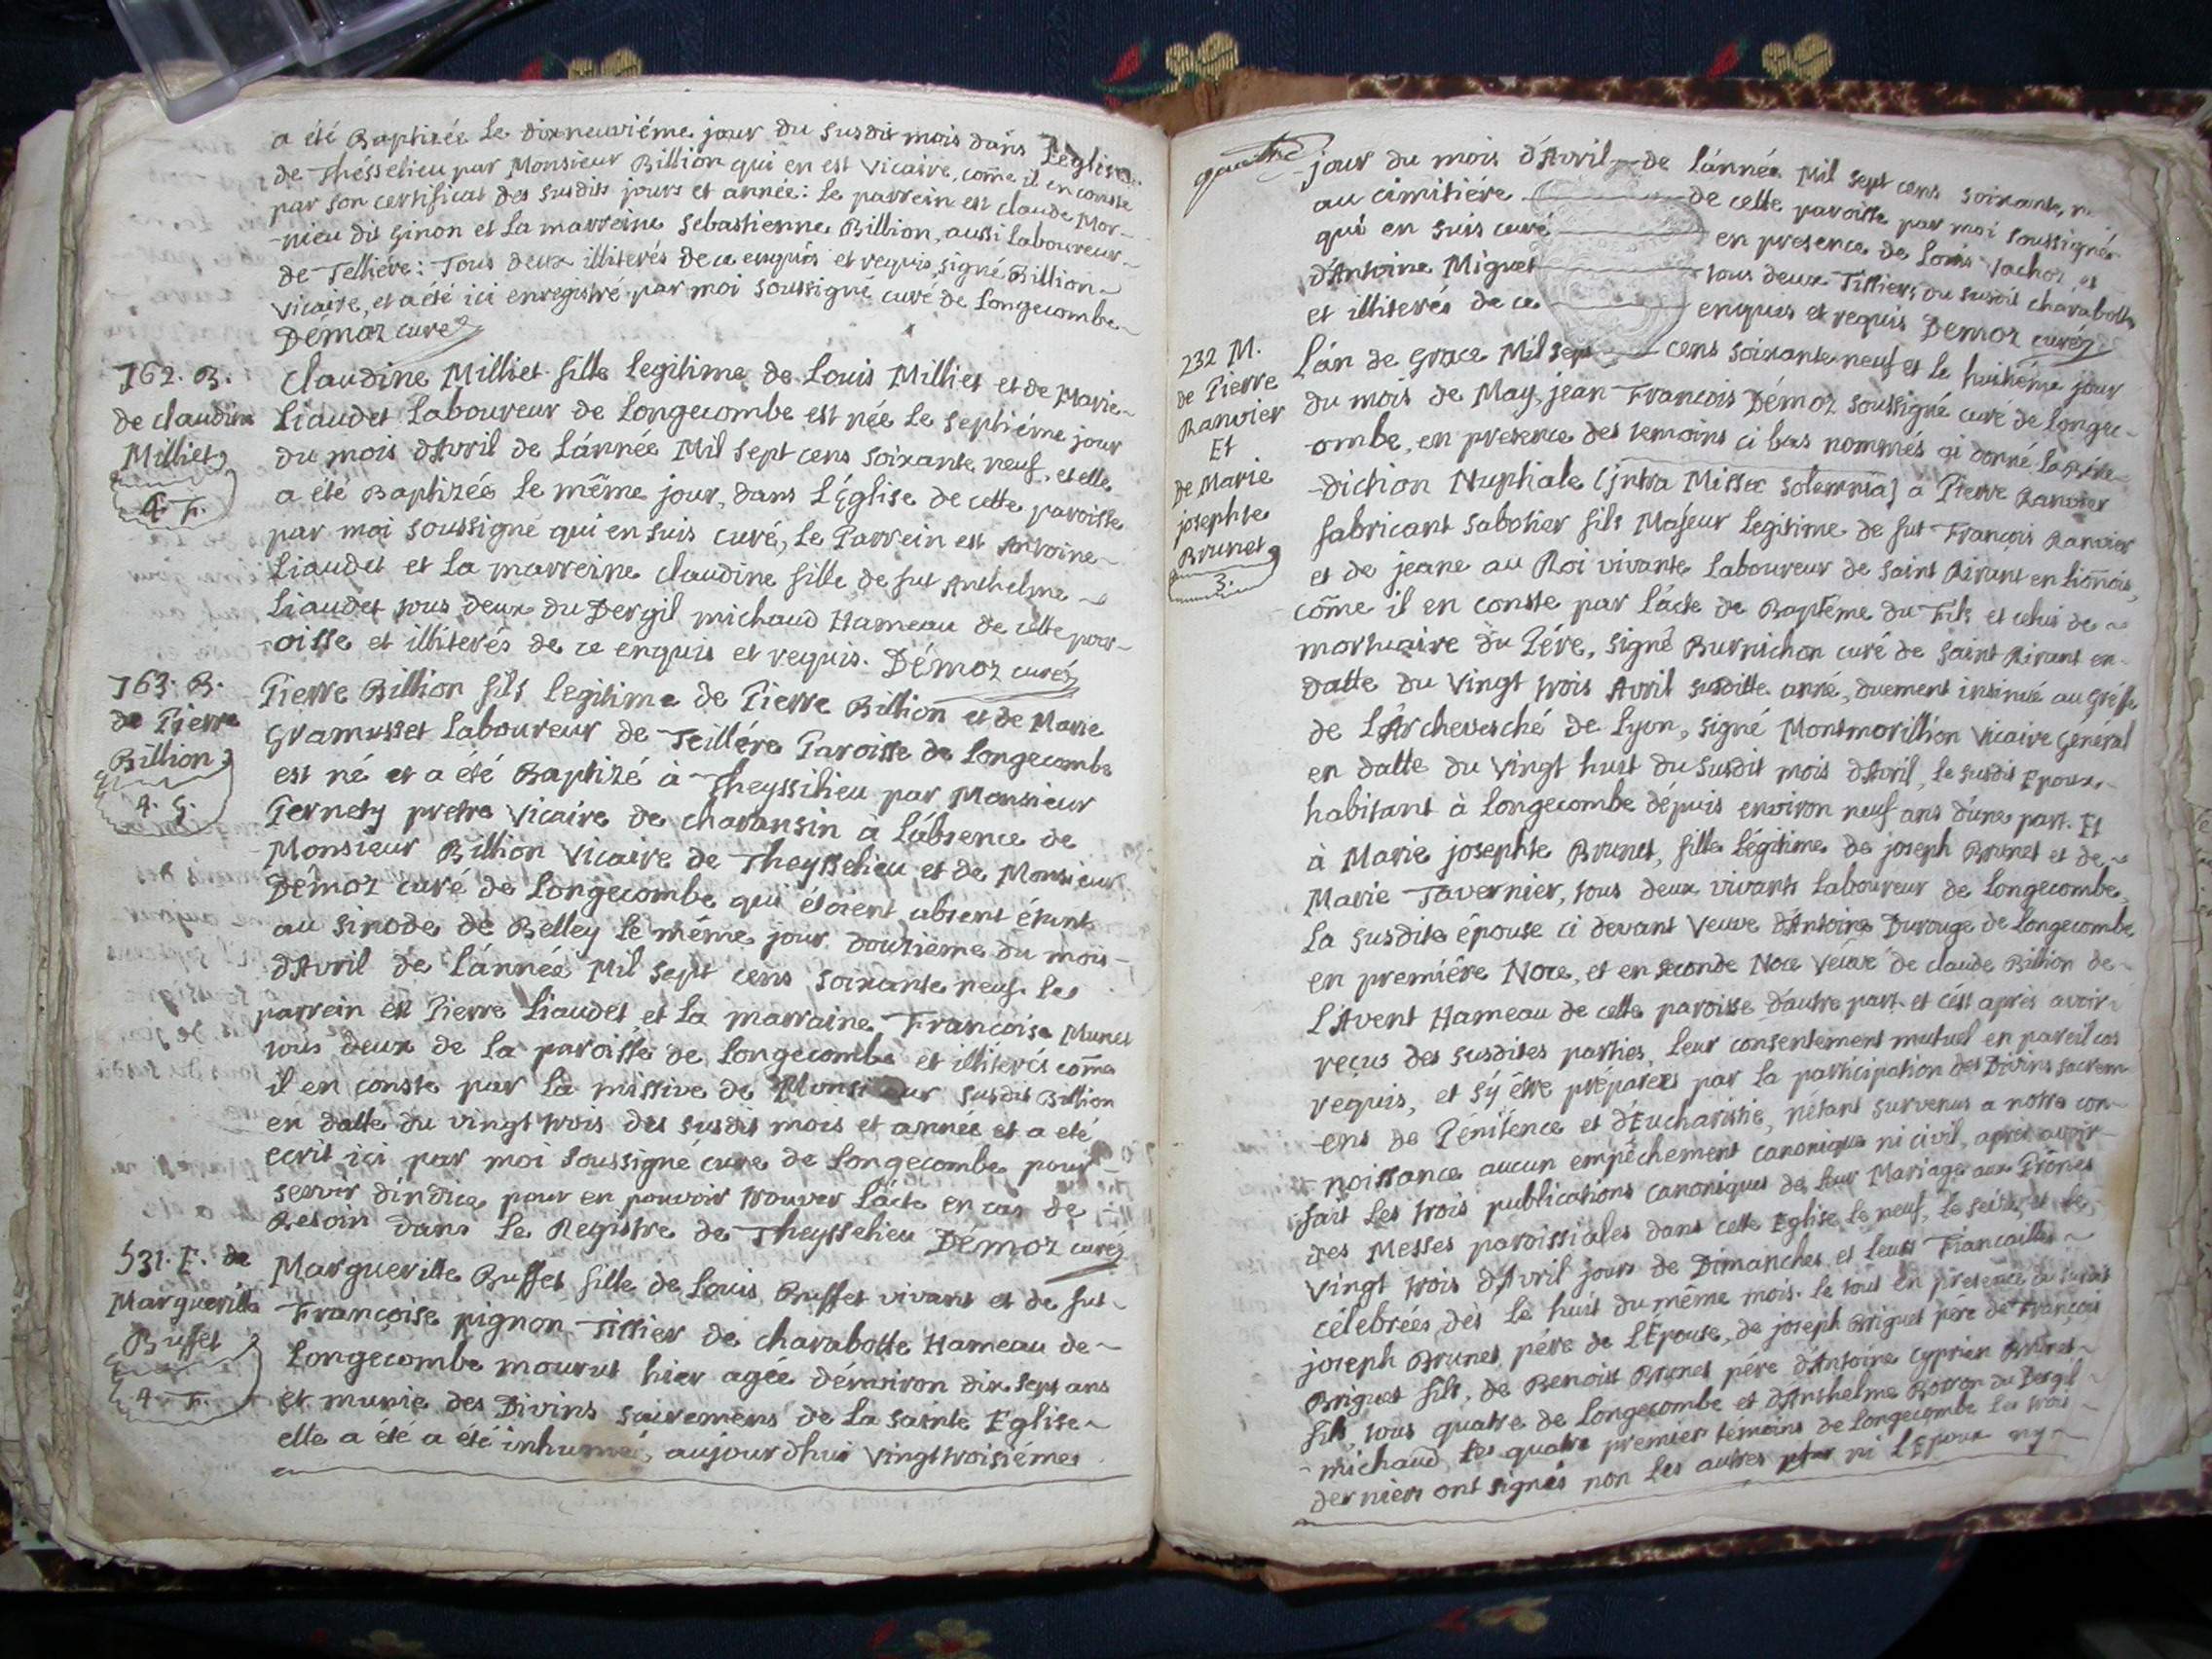 a été Baptizée Le dixneuviéme jour du susdit mois dans L'eglise
de Thésselieu par Monsieur Billion qui en est Vicaire, come il en conste
par son certificat des susdits jours et année: Le parrein est claude Mor-
-nieu dit Ginon et La marreine sebastienne Billion, aussi Laboureur
de Telliére: Tous deux illiterés de ce enquis et requis, signé Billion
vicaire, et a été ici enregistré par moi soussigné curé de Longecombe
Démoz curé
762. B.
de claudine
Milliet
4. F.
Claudine Milliet fille legitime de Louis Milliet et de Marie
Liaudet Laboureur de Longecombe est née Le septiéme jour
du mois d'Avril de L'année Mil sept cens soixante neuf, et elle
a été Baptizée Le même jour, dans L'Eglise de cette paroisse
par moi soussigné qui en suis curé, Le Parrein est Antoine
Liaudet et La marreine claudine fille de fut Anthelme
Liaudet tous deux du Dergil michaud Hameau de cette par-
-oisse et illiterés de ce enquis et requis. Démoz curé
763. B.
de Pierre
Billion
4. G.
Pierre Billion fils legitime de Pierre Billion et de Marie
Gramusset Laboureur de Teillére Paroisse de Longecombe
est né et a été Baptizé à Theyssilieu par Monsieur
Pernety pretre Vicaire de charansin à L'absence de
Monsieur Billion Vicaire de Theysselieu et de Monsieur
Démoz curé de Longecombe qui étoient absent étant
au sinode de Belley Le même jour douzieme du mois
d'Avril de L'année Mil sept cens soixante neuf. Le
parrein est Pierre Liaudet et La marraine Francoise Munet
tous deux de La paroisse de Longecombe et illiterés come
il en conste par La missive de Monsieur susdit Billion
en datte du vingt trois des susdit mois et année et a eté
ecrit ici par moi soussigné curé de Longecombe pour
servir d'indice pour en pouvoir trouver L'acte en cas de
Besoin dans Le Registre de Theysselieu Démoz curé
531. E. de
Marguerite
Buffet
4. F.
Marguerite Buffet fille de Louis Buffet vivant et de fut
Françoise pignon Tissier de charabotte Hameau de
Longecombe mourut hier agée d'environ dix sept ans
et munie des Divins sacremens de La sainte Eglise
elle a été a été inhumée, aujourdhui vingttroisiémes
quatre jour du mois d'Avril de L'année Mil sept cens soixante
au cimitiére de cette paroisse par moi soussigné
qui en suis curé en presence de Louis Vachoz et
d'Antoine Miguet tous deux Tissiers du susdit charabotte
et illiterés de ce enquis et requis Demoz curé
232 M.
de Pierre
Ranvier
Et
de Marie
josephte
Brunet
3.
L'an de grace Mil sept cens soixante neuf et Le huitiéme jour
du mois de May, jean Francois Démoz soussigné curé de Longec-
ombe, en presence des temoins ci bas nommés ai donné La Béné-
-diction Nuptiale (jntra Missæ solemnia) a Pierre Ranvier
fabricant sabotier fils Majeur Legitime de fut François Ranvier
et de jeane au Roi vivante Laboureur de saint Rirant en Lionois,
côme il en conste par L'acte de Baptême du Fils et celui de
mortuaire du Pére, signé Burnichon curé de saint Rirant en
datte du vingt trois Avril susditte anné, duement insinué au Gréffe
de L'Archevesché de Lyon, signé Montmorillion Vicaire Général
en datte du Vingt huit du susdit mois d'Avril, Le susdit Epoux
habitant à Longecombe dépuis environ neuf ans d'une part. Et
à Marie josephte Brunet, fille Légitime de joseph Brunet et de
Marie Tavernier, tous deux vivants Laboureur de Longecombe,
La susdite épouse ci devant Veuve d'Antoine Durouge de Longecombe
en première Noce, et en seconde Noce Veuve de claude Billion de
L'Avent Hameau de cette paroisse d'autre part et c'est après avoir
reçus des susdites parties Leur consentement mutuel en pareil cas
requis, et s'y être préparées par La participation des Divins sacrem-
-ens de Pénitence et d'Eucharistie, n'étant survenus a notre con-
-noissance aucun empêchement canonique ni civil, apres avoir
fait Les trois publications canoniques de Leur Mariage aux Prônes
des Messes paroissiales dans cette Eglise Le neuf, Le seize, et Le
vingt trois d'Avril jours de Dimanches et Leurs Fiancailles
célebrées dès Le huit du même mois. Le tout en presence
joseph Brunet pére de L'Epouse, de joseph Briguet pére de François
Briguet fils, de Benoist Brunet pére d'Antoine Cyprien Brunet
fils, tous quatre de Longecombe et d'Anthelme Borron du Dergil
-michaud, Les quatre premiers témoins de Longecombe Les trois
derniers ont signés non Les autres ni L'Epoux ny